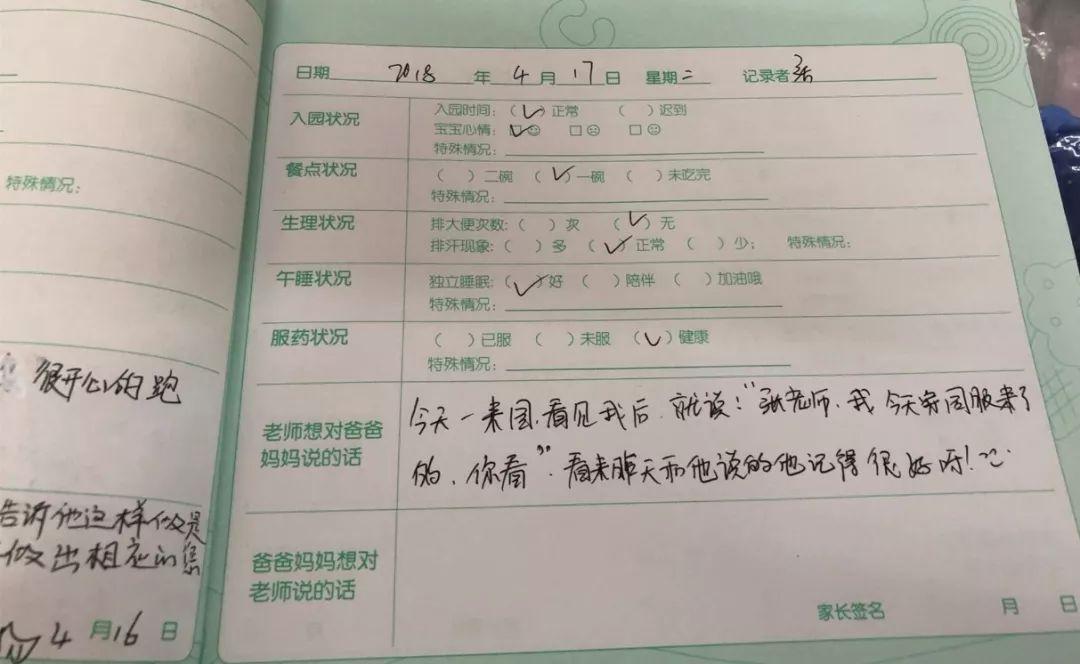 特殊情况：
很开心的跑
告诉他这样做是
做出相应的
4月16日
日期 2018 年 4 月 17 日 星期二 记录者 张
入园状况
入园时间：（✓）正常 （ ）迟到
宝宝心情：☑☺ □☹ □😐
特殊情况：
餐点状况
（ ）二碗 （✓）一碗 （ ）未吃完
特殊情况：
生理状况
排大便次数：（ ）次 （✓）无
排汗现象：（ ）多 （✓）正常 （ ）少； 特殊情况：
午睡状况
独立睡眠：（✓）好 （ ）陪伴 （ ）加油哦
特殊情况：
服药状况
（ ）已服 （ ）未服 （✓）健康
特殊情况：
老师想对爸爸
妈妈说的话
今天一来园，看见我后，就说：“张老师，我今天穿园服来了
的，你看”。看来昨天和他说的他记得很好呀！
爸爸妈妈想对
老师说的话
家长签名 月 日